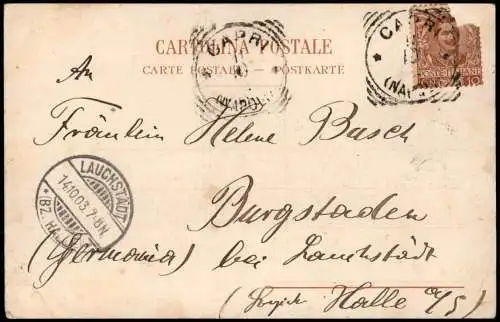 CARTOLINA POSTALE
CARTE POSTALE – POSTKARTE
CAPRI
(NAPOLI)
CAPRI
(NAP
POSTE ITALIANE
10
An
Fräulein Helene Busch
Burgstaden
(Germania) bei Lauchstädt
Halle a/S)
LAUCHSTÄDT
14.10.03.7-8N.
*(BZ. HALLE